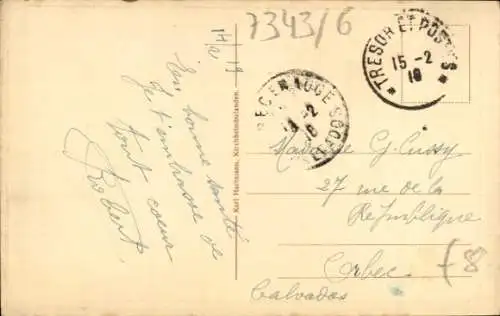 7343/6
14/2 19
En bonne santé
Je t'embrasse de
tout coeur
Robert
Karl Hartmann, Kirchheimbolanden.
TRESOR ET POSTES
15-2
19
ORBEC EN AUGE
CALVADOS
Madame G. Cussy
27 rue de la
République
Orbec
Calvados
f8